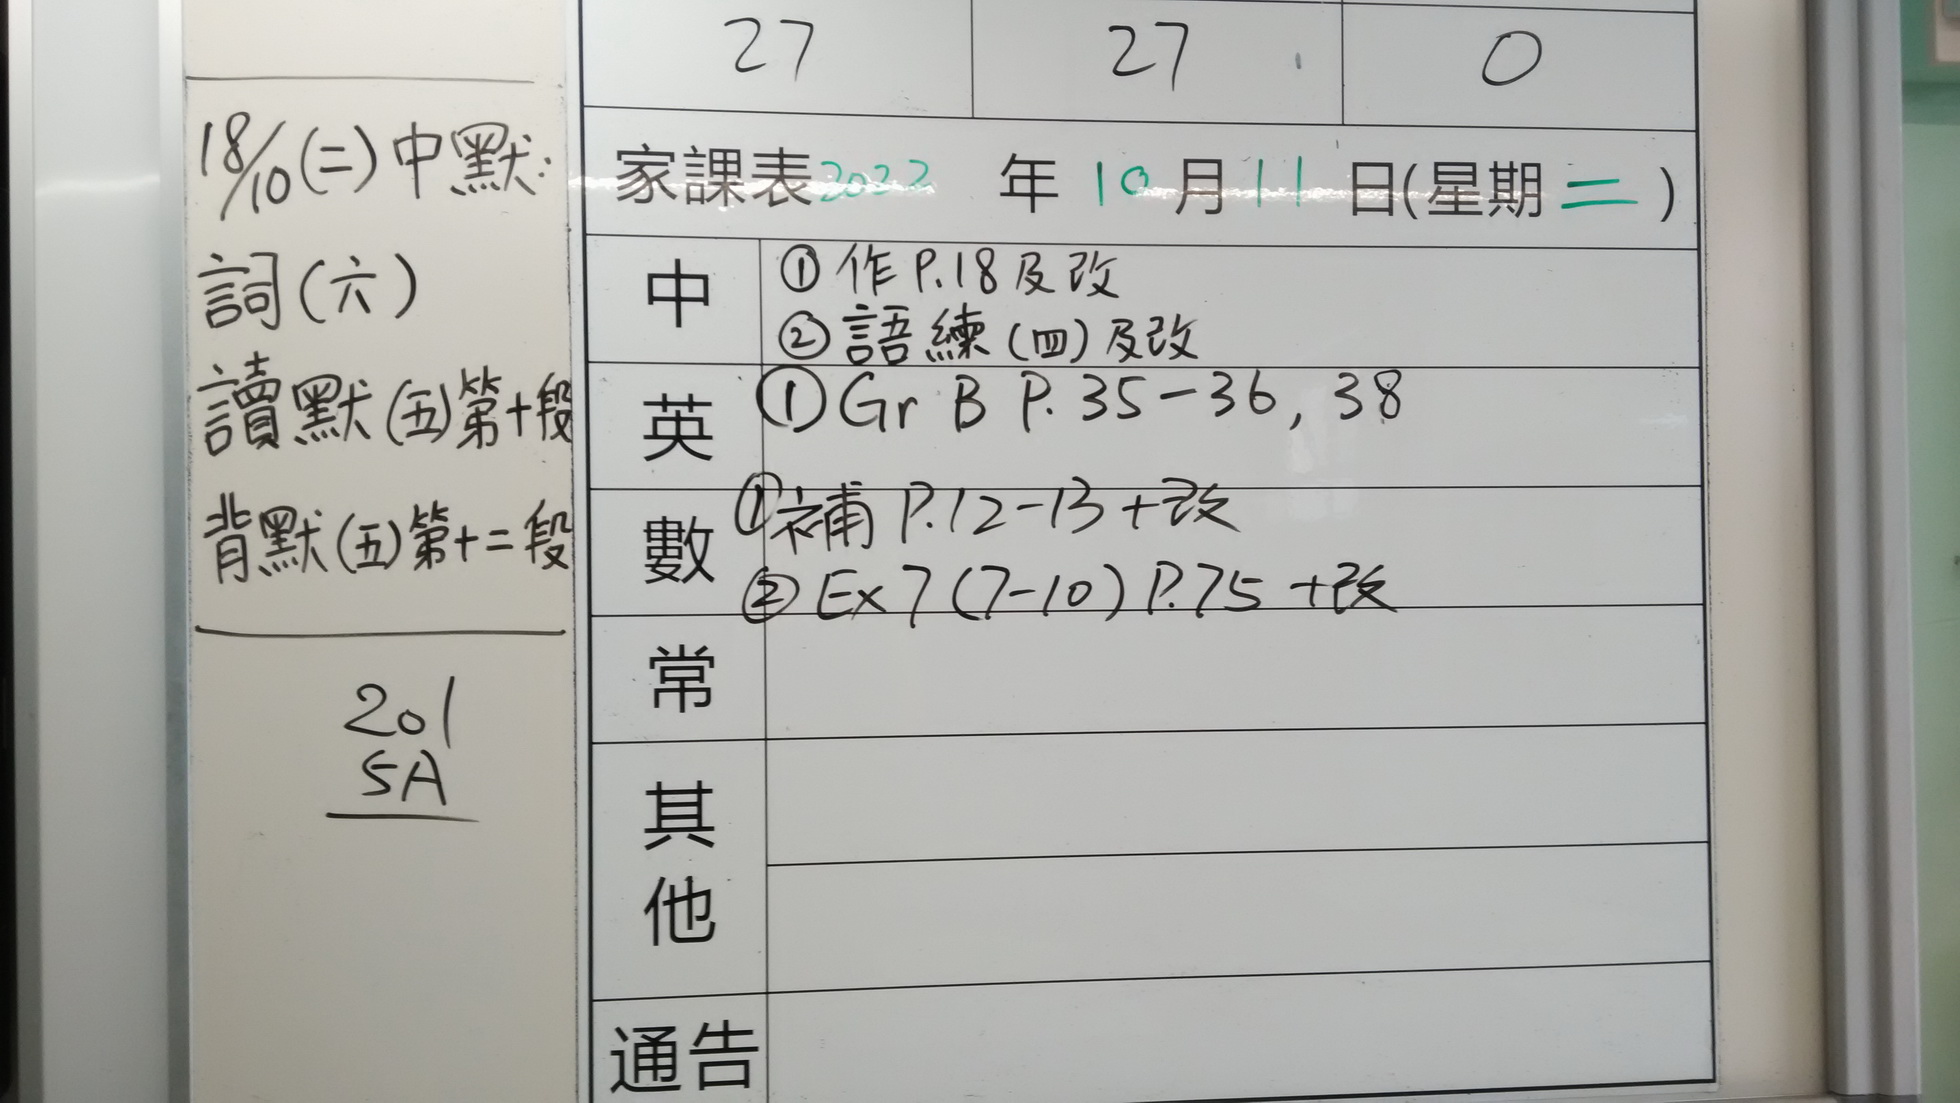 27 27 0
18/10(二)中默:
詞(六)
讀默(五)第十段
背默(五)第十二段
201
5A
家課表2022 年 10月11 日(星期二)
中 ①作P.18及改
②語練(四)及改
英 ①Gr B P.35-36, 38
數 ①補 P.12-13+改
②Ex7(7-10) P.75 +改
常
其他
通告